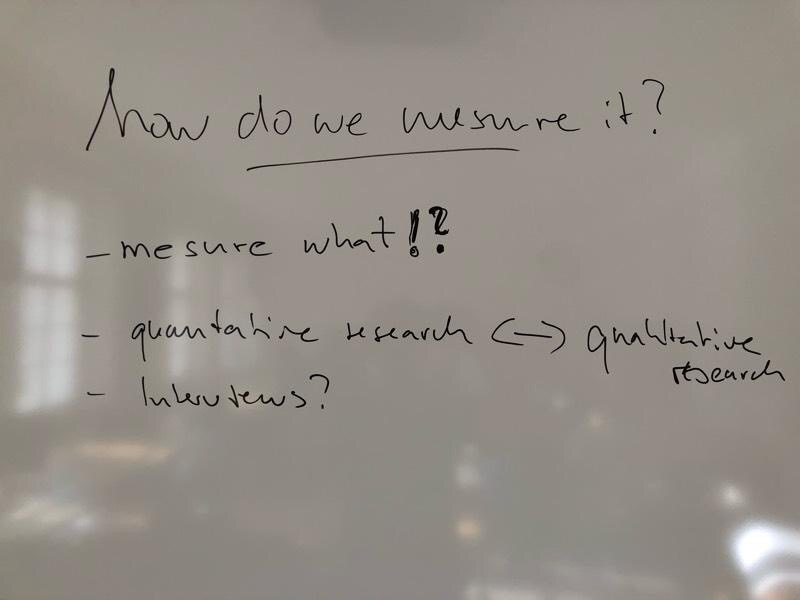 how do we mesure it?
- mesure what!?
- quantative research <-> qualitative
research
- Interviews?